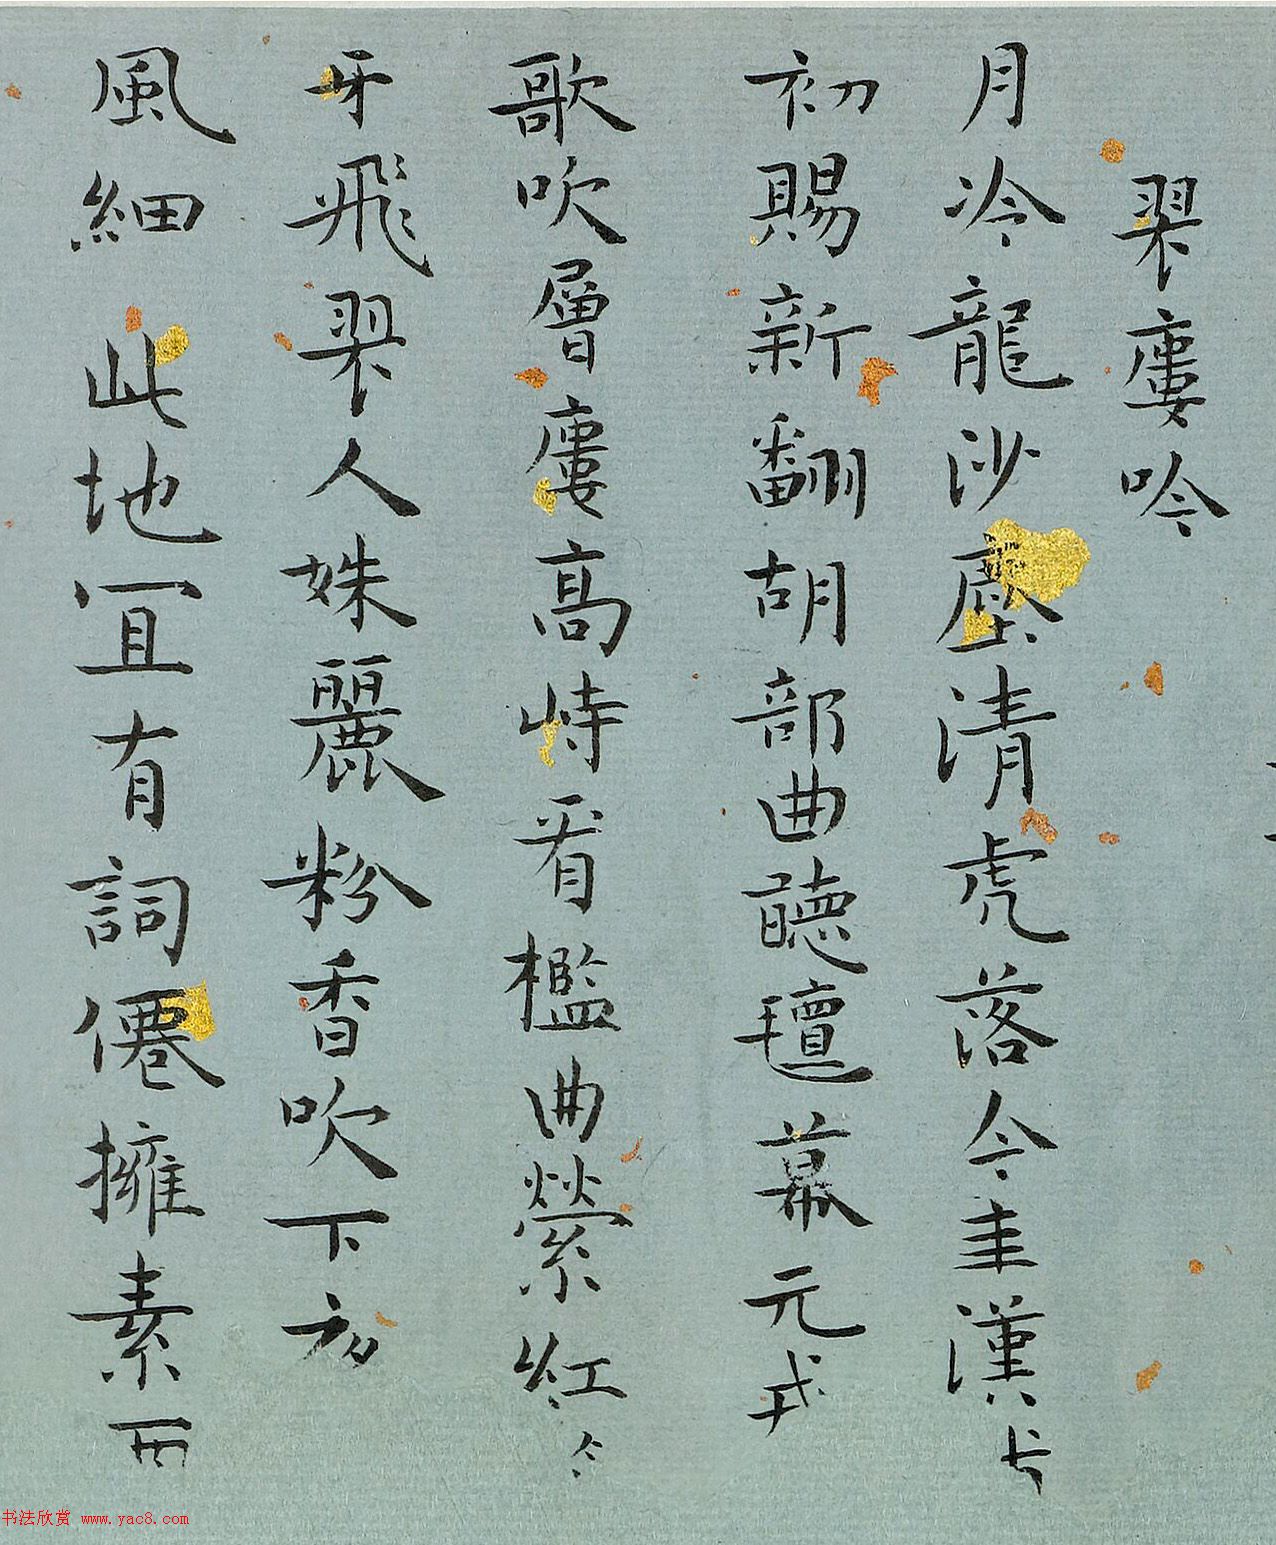 翠廔吟
月冷龍沙塵清虎落今年漢
初賜新翻胡部曲聽氈幕元戎
歌吹層廔高峙看檻曲縈紅
牙飛翠人姝麗粉香吹下
風細此地冝有詞僊擁素
书法欣赏 www.yac8.com